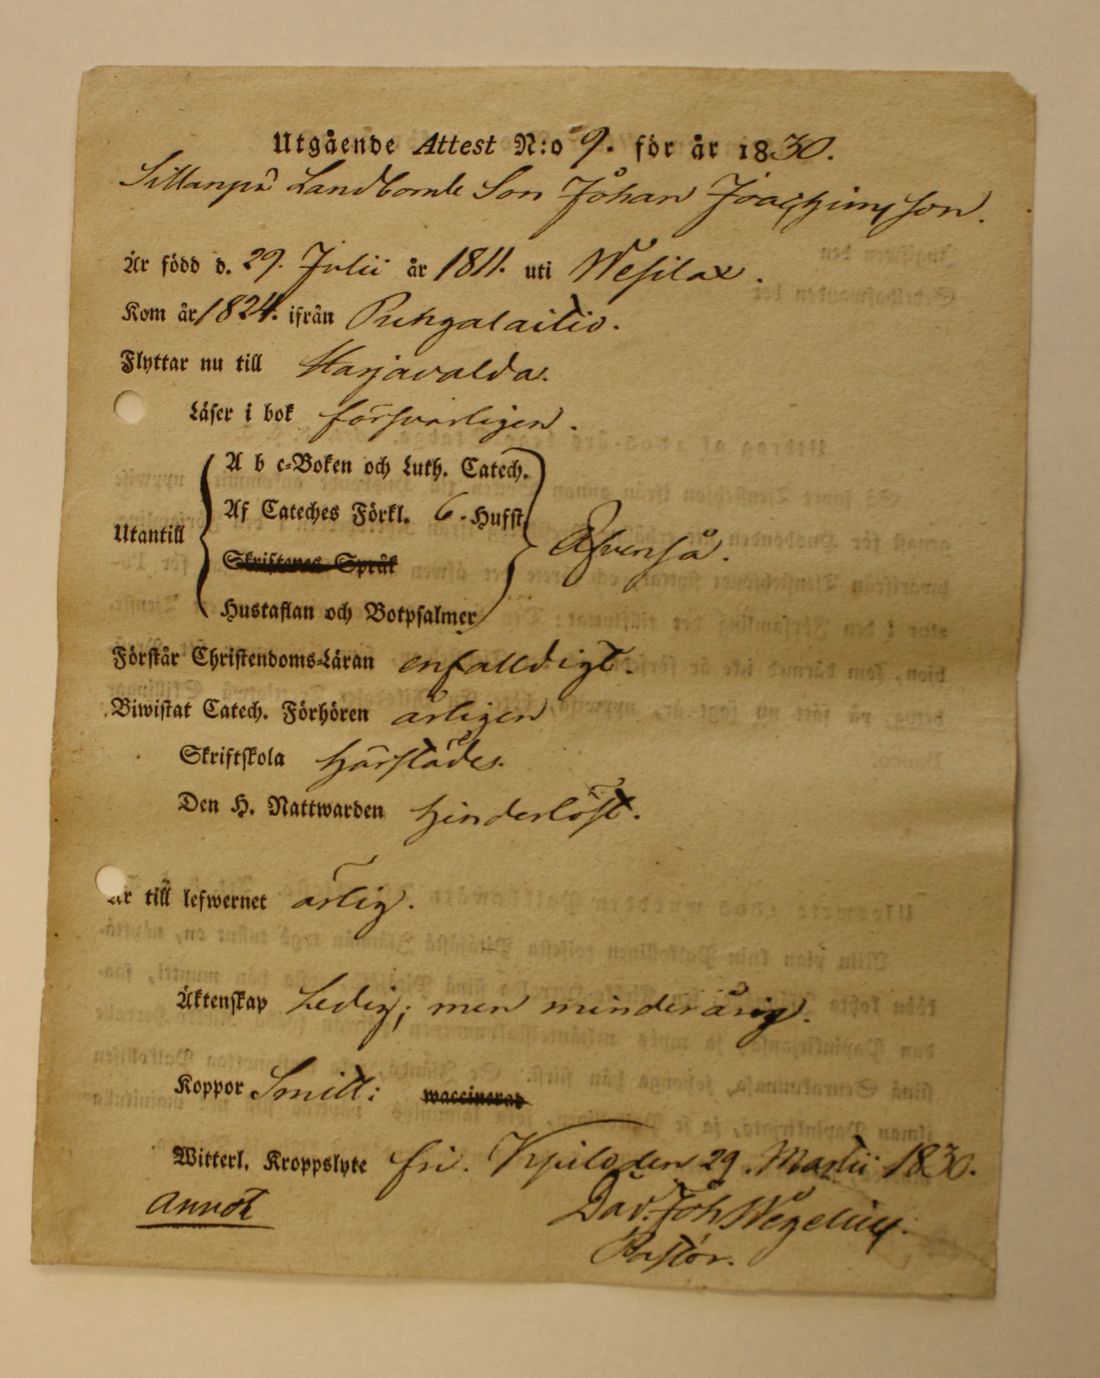 Utgående Attest N:o 9. för år 1830.
Sillanpä Landbonde Son Johan Joachimsson.
Är född d. 29. Julii år 1811. uti Wesilax.
Kom år 1824. ifrån Pungalaitio.
Flyttar nu till Harjavalda.
Läser i bok försvarligen.
A b c-Boken och Luth. Catech.
Af Cateches Förkl. 6. Hufst.
Utantill Äfvenså.
Skriftenes Språk
Hustaflan och Botpsalmer
Förstår Christendoms-Läran enfalldigt.
Biwistat Catech. Förhören årligen
Skriftskola härstädes.
Den H. Nattwarden hinderlöst.
Är till lefwernet ärlig.
Äktenskap Ledig; men minderårig.
Koppor Smitt: waccinerad
Witterl. Kroppslyte fri. den 29. Martii 1830.
annot Dav. Joh Wegelius.
Pastor.